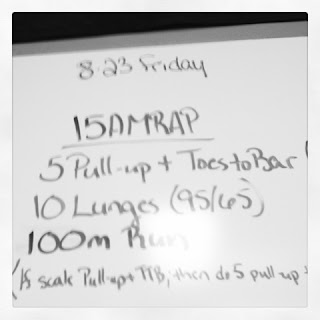 8-23 Friday
15AMRAP
5 Pull-up + Toes to Bar (
10 Lunges (95/65)
100m Run
(If scale Pull-up + TTB, then do 5 pull-up